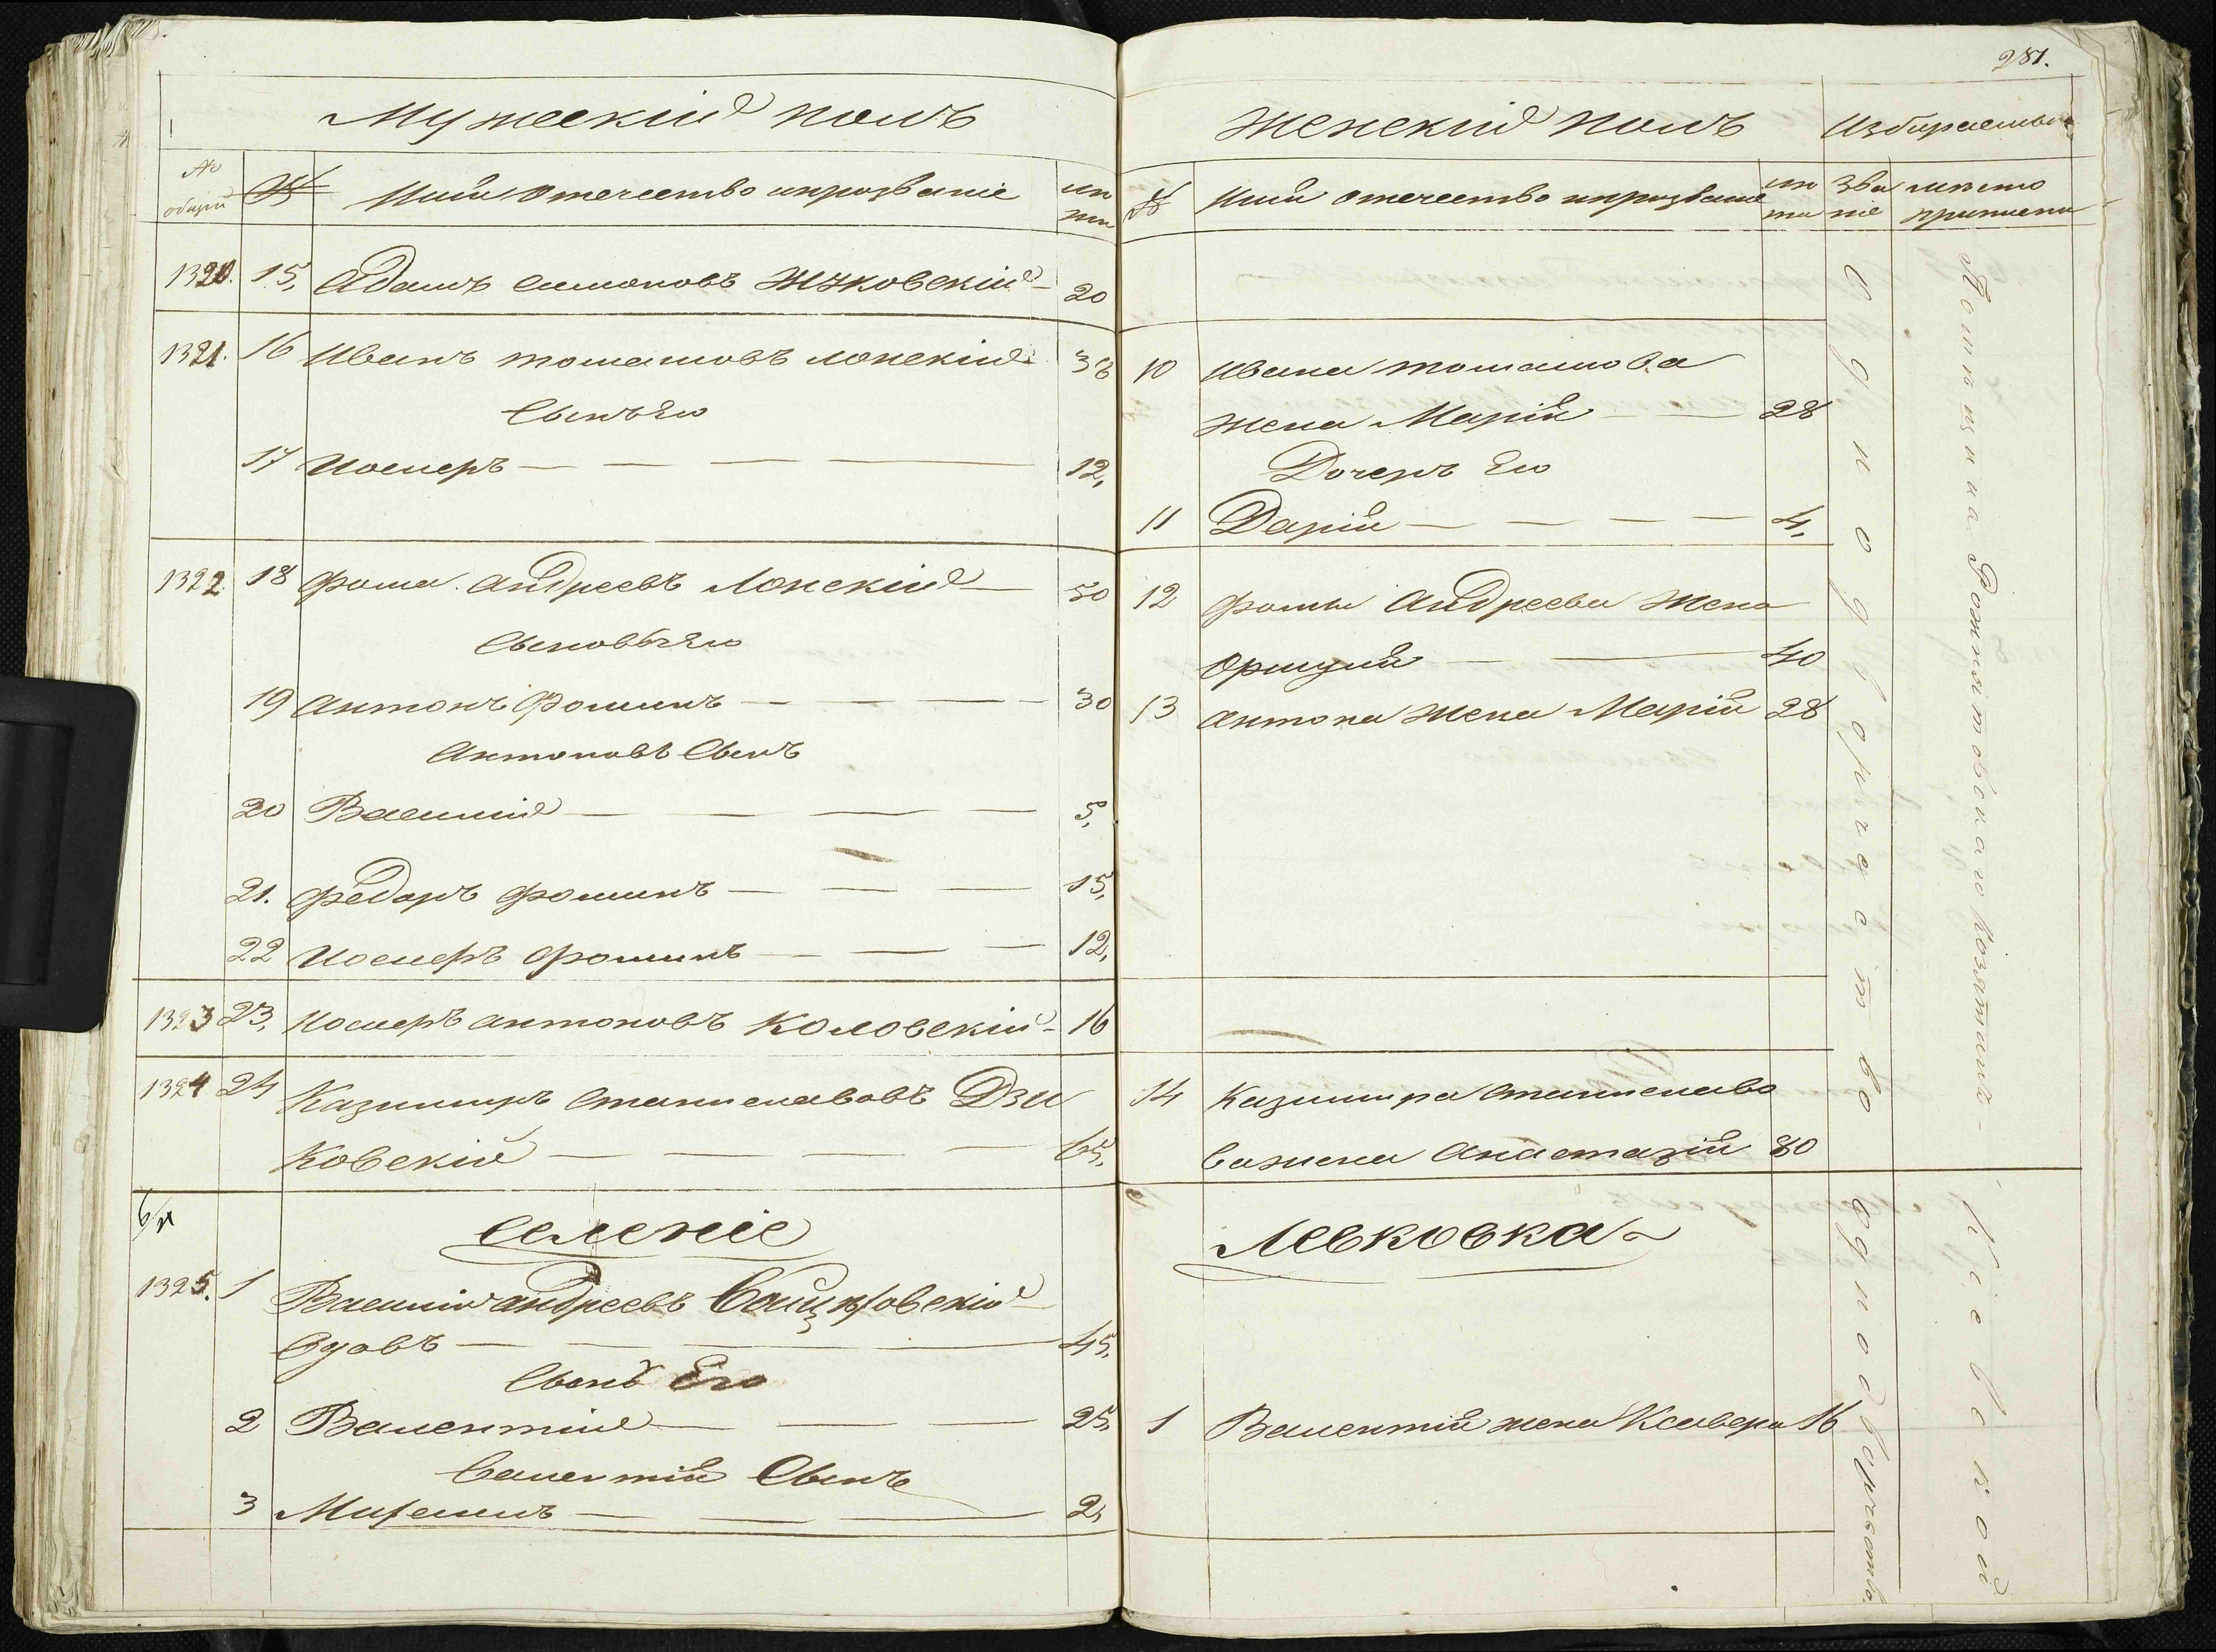 281.
Мужескій полъ
№ общій
№
Имя Отечество ипрозваніе
лѣта
1320. 15, Адамъ Симоновъ Жуковскій 20
1321. 16 Иванъ томашовъ лонскій 38
Сынъ Его
17 Иосиеръ 12,
1322. 18 Фома Андреевъ Лонскій 50
Сыновья Его
19 Антонъ Фоминъ 30
Антоновъ Сынъ
20 Василій 5,
21. Федоръ Фоминъ 15,
22 Иосиеръ Фоминъ 12,
1323 23, Иосиеръ антоновъ Коловскій 16
1324 24 Казимиръ Станиславовъ Дзи
Ковскій 65,
Селеніе
1325. 1 Василій андреевъ
Вдовъ 45,
Сынъ Его
2 Валентій 25,
Валентія Сынъ
3 2,
Женскій полъ
Избираемые
№
Имя отечество ипрозваніе
лѣта
Зва ніе
мѣсто приписки
10 Ивана томашова
жена Марія 28
Дочерь Его
11 Дарія 4,
12 Фомы Андреева Жена
40
13 Антона Жена Марія 28
14 Казимира Станиславо
ва жена Анастазія 80
Левковка
1 Валентія жена Ксавера 16
Однодворчество
Однодворчество.
Помѣщика
Кіевской